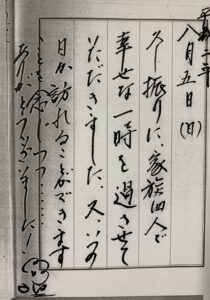 平成二年
八月五日(日)
久し振りに、家族四人で
幸せな一時を過させて
いただきました。又、いつの
日か訪れることができます
ことを念じつつ……
ありがとうございました!